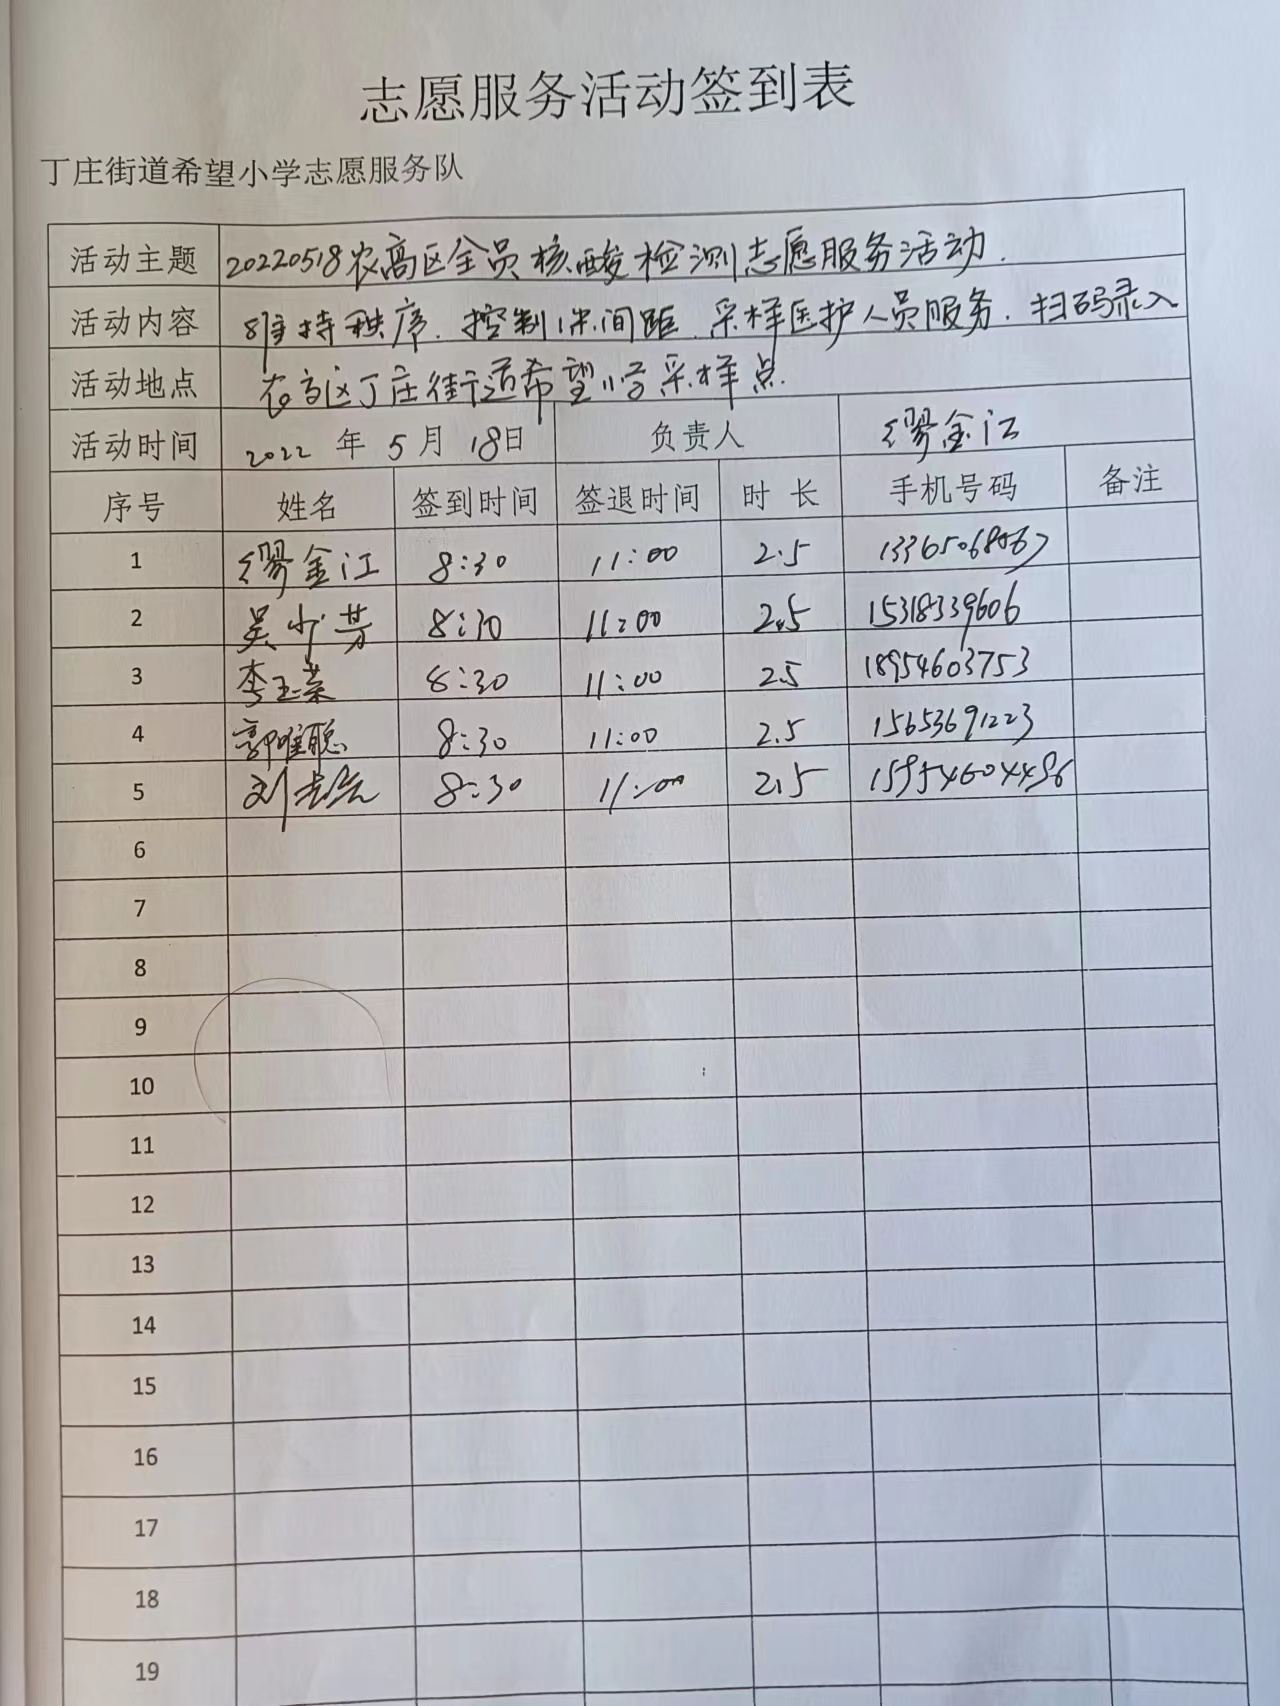 志愿服务活动签到表
丁庄街道希望小学志愿服务队
活动主题 20220518农高区全员核酸检测志愿服务活动.
活动内容 维持秩序.控制1米间距.采样医护人员服务.扫码录入
活动地点 农高区丁庄街道希望小学采样点.
活动时间 2022 年 5 月 18日 负责人 缪金江
序号 姓名 签到时间 签退时间 时 长 手机号码 备注
1 缪金江 8:30 11:00 2.5
2 吴少芳 8:30 11:00 2.5 15318339606
3 李玉荣 8:30 11:00 2.5 18954603753
4 郭唯聪 8:30 11:00 2.5 15653691223
5 刘 8:30 11:00 2.5 15954604496
6
7
8
9
10
11
12
13
14
15
16
17
18
19